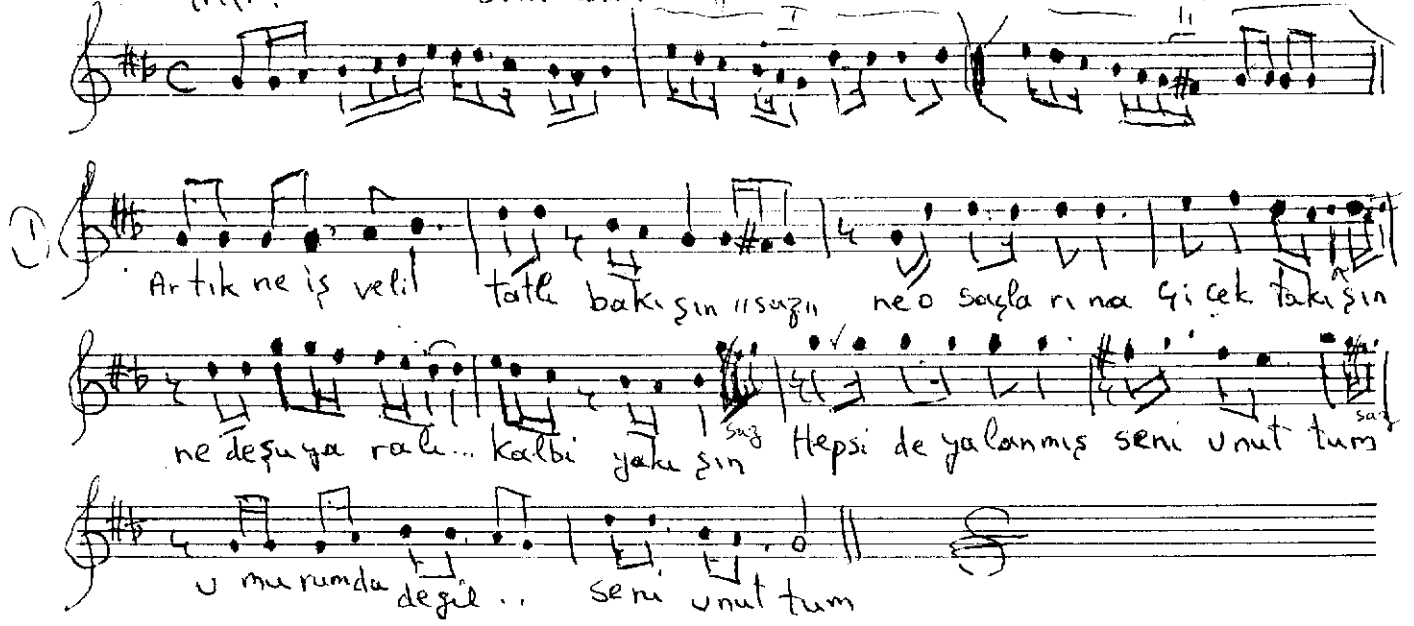 I
II
I
Ar tık ne iş veli! tatlı bakı şın "saz" ne o saçla rı na çi çek takı şın
ne de şu ya ralı... kalbi yakı şın saz Hepsi de yalanmış seni unut tum saz
u mu rumda değil.. seni unut tum